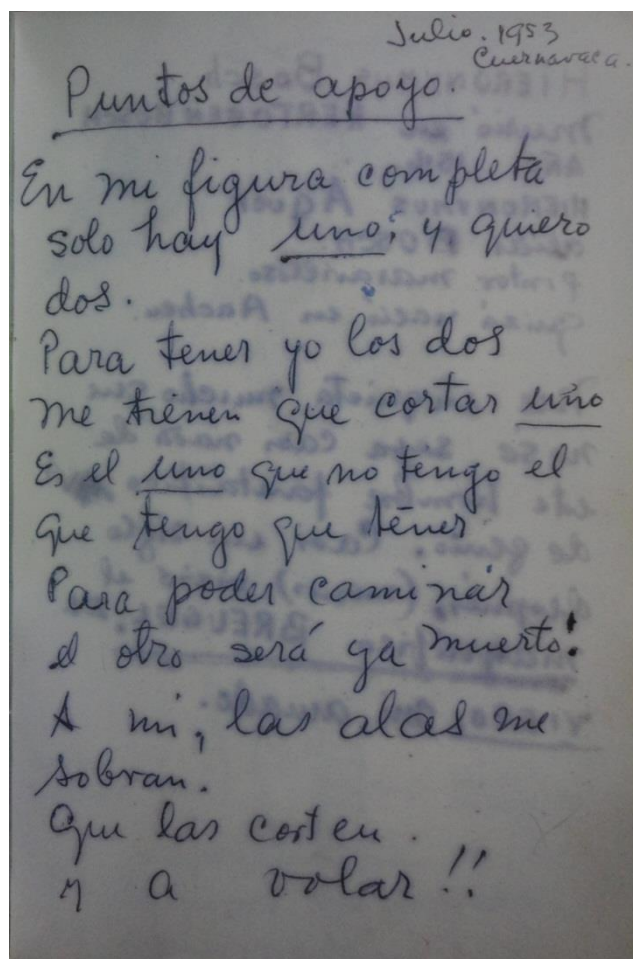 Julio. 1953
Cuernavaca.
Puntos de apoyo.
En mi figura completa
solo hay uno; y quiero
dos.
Para tener yo los dos
me tienen que cortar uno
Es el uno que no tengo el
que tengo que tener
Para poder caminar
el otro será ya muerto!
A mi, las alas me
sobran.
Que las corten.
y a volar!!